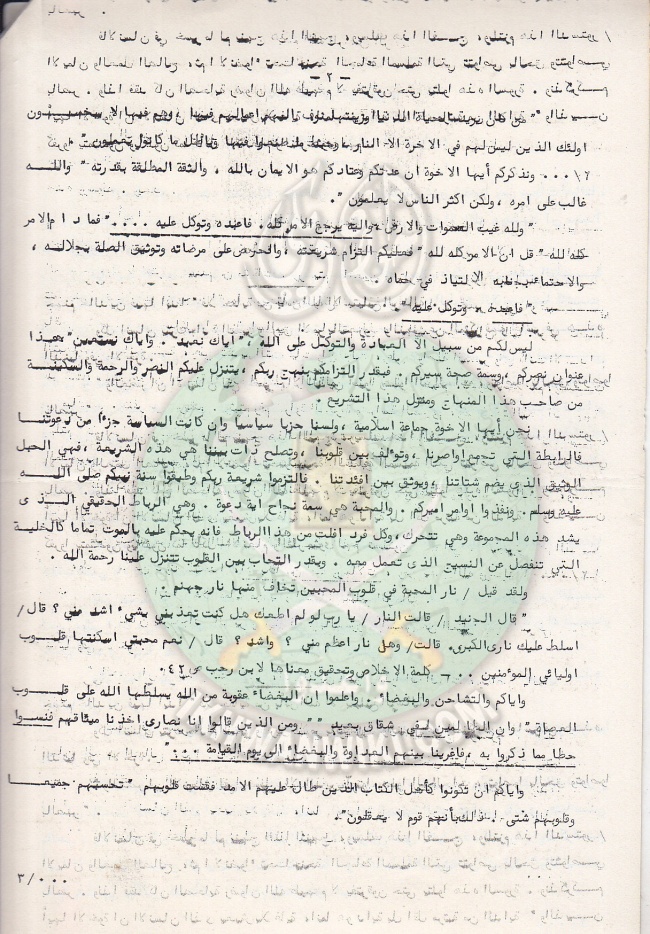 - ٢ -
اولئك الذين ليس لهم في الاخرة الا النار ، وحبط ما صنعوا فيها وباطل ما كانوا يعملون "
٢/٠٠٠ ونذكركم أيها الاخوة ان عدتكم وعتادكم هو الايمان بالله ، والثقة المطلقة بقدرته " واللـــه
غالب على امره ، ولكن اكثر الناس لا يعلمون " .
" ولله غيب السموات والارض ، واليه يرجع الامر كله . فاعبده وتوكل عليه .... " فما دام الامر
كله لله " قل ان الامر كله لله " فعليكم التزام شريعته ، والحرص على مرضاته وتوثيق الصلة بجلاله ،
والاحتماء بجنابه الالتياذ في حماه .
" فاعبده ، وتوكل عليه " .
ليس لكم من سبيل الا العبادة والتوكل على الله ، " اياك نعبد . واياك نستعين " هــذا
عنوان نصركم ، وسمة صحة سيركم . فبقدر التزامكم بنهج ربكم ، يتنزل عليكم النصر والرحمة والسكينــة
من صاحب هذا المنهاج ومنزل هذا التشريع .
نحن أيها الاخوة جماعة اسلامية ، ولسنا حزبا سياسيا وان كانت السياسة جزءا من دعوتنـــا
فالرابطة التي تجمع اواصرنا ، وتؤلف بين قلوبنا ، وتصلح ذات بيننا هي هذه الشريعة ، فهي الحبل
الوثيق الذى يضم شتاتنا ، ويوثق بين افئدتنا . فالتزموا شريعة ربكم وطبقوا سنة نبيكم صلى اللـــه
عليه وسلم . ونفذوا اوامر اميركم . والمحبة هي سمة نجاح اية دعوة . وهي الرباط الحقيقي الـــذى
يشد هذه المجموعة وهي تتحرك ، وكل فرد افلت من هذا الرباط فانه يحكم عليه بالموت تماما كالخليـة
التي تنفصل عن النسيج الذى تعمل معه . وبقدر التحاب بين القلوب تتنزل علينا رحمة الله .
ولقد قيل / نار المحبة في قلوب المحبين تخاف منها نار جهنم .
" قال الجنيد / قالت النار / يا رب لو لم اطعك هل كنت تعذبني بشيء اشد مني ؟ قال /
اسلط عليك نارى الكبرى. قالت / وهل نار اعظم مني ؟ واشد ؟ قال / نعم محبتي اسكنتها قلـــوب
اوليائي المؤمنين ... كلمة الاخلاص وتحقيق معناها لابن رجب ص ٤٢ .
واياكم والتشاحن والبغضاء . واعلموا ان البغضاء عقوبة من الله يسلطها الله على قلـــوب
العصاة " وان الظالمين لـفي شقاق بعيد " " ومن الذين قالوا انا نصارى اخذنا ميثاقهم فنسوا
حظا مما ذكروا به ، فاغرينا بينهم العداوة والبغضاء الى يوم القيامة ... "
واياكم ان تكونوا كأهل الكتاب الذين طال عليهم الامد فقست قلوبهم " تحسبهم جميعـــا
وقلوبهم شتى . ذلك بأنهم قوم لا يعقلون " .
٣/٠٠٠